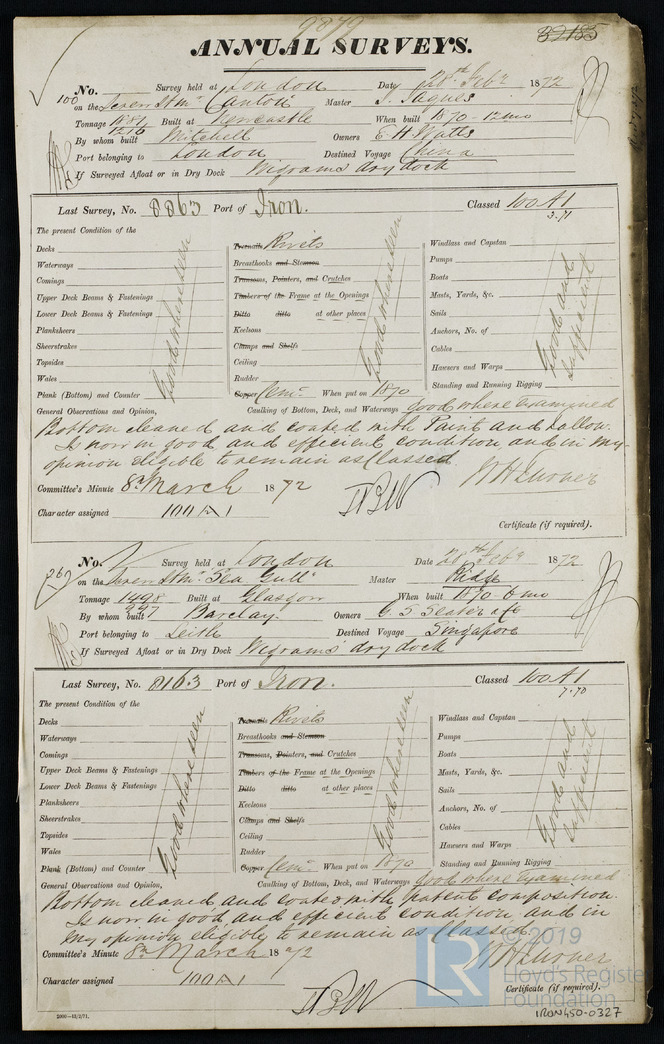 9879
ANNUAL SURVEYS.
32185
No. Survey held at London Date 28th Feby 1872
100 on the Screw Stmr "Canton" Master J. Jaques
Tonnage 1681 1216 Built at Newcastle When built 1870-12mo
By whom built Mitchell Owners E H Watts
Port belonging to London Destined Voyage China
If Surveyed Afloat or in Dry Dock Wigrams dry dock
Last Survey, No. 8863 Port of Iron. Classed 100 A1
2.71
The present Condition of the
Decks
Waterways
Comings
Upper Deck Beams & Fastenings
Lower Deck Beams & Fastenings
Planksheers
Sheerstrakes
Topsides
Wales
Plank (Bottom) and Counter
Good where seen
Treenails Rivets
Breasthooks and Stemson
Transoms, Pointers, and Crutches
Timbers of the Frame at the Openings
Ditto ditto at other places
Keelsons
Clamps and Shelfs
Ceiling
Rudder
Copper Cemt. When put on 1870
Good where seen
Windlass and Capstan
Pumps
Boats
Masts, Yards, &c.
Sails
Anchors, No. of
Cables
Hawsers and Warps
Standing and Running Rigging
Good and
Sufficient
General Observations and Opinion, Caulking of Bottom, Deck, and Waterways Good where examined
Bottom cleaned and coated with Paint and tallow.
Is now in good and efficient condition and in my
opinion eligible to remain as Classed.
Committee's Minute 8th March 1872
Character assigned 100 A 1
Certificate (if required).
No. Survey held at London Date 28th Feby 1872
on the Screw Stmr "Sea Gull" Master
Tonnage 1498 Built at Glasgow When built 1870-6mo
By whom built Barclay. Owners
Port belonging to Leith Destined Voyage Singapore
If Surveyed Afloat or in Dry Dock Wigrams' dry dock
Last Survey, No. 8163 Port of Iron. Classed 100 A1
7.70
The present Condition of the
Decks
Waterways
Comings
Upper Deck Beams & Fastenings
Lower Deck Beams & Fastenings
Planksheers
Sheerstrakes
Topsides
Wales
Plank (Bottom) and Counter
Good where seen
Treenails Rivets
Breasthooks and Stemson
Transoms, Pointers, and Crutches
Timbers of the Frame at the Openings
Ditto ditto at other places
Keelsons
Clamps and Shelfs
Ceiling
Rudder
Copper Cemt. When put on 1870
Good where seen
Windlass and Capstan
Pumps
Boats
Masts, Yards, &c.
Sails
Anchors, No. of
Cables
Hawsers and Warps
Standing and Running Rigging
Good and
Sufficient
General Observations and Opinion, Caulking of Bottom, Deck, and Waterways Good where examined
Bottom cleaned and coated with patent composition.
Is now in good and efficient condition, and in
my opinion eligible to remain as Classed.
Committee's Minute 8th March 1872
Character assigned 100 A 1
Certificate (if required).
2000-13/2/71.
LR © 2019
Lloyd's Register
Foundation
IRON450-0327